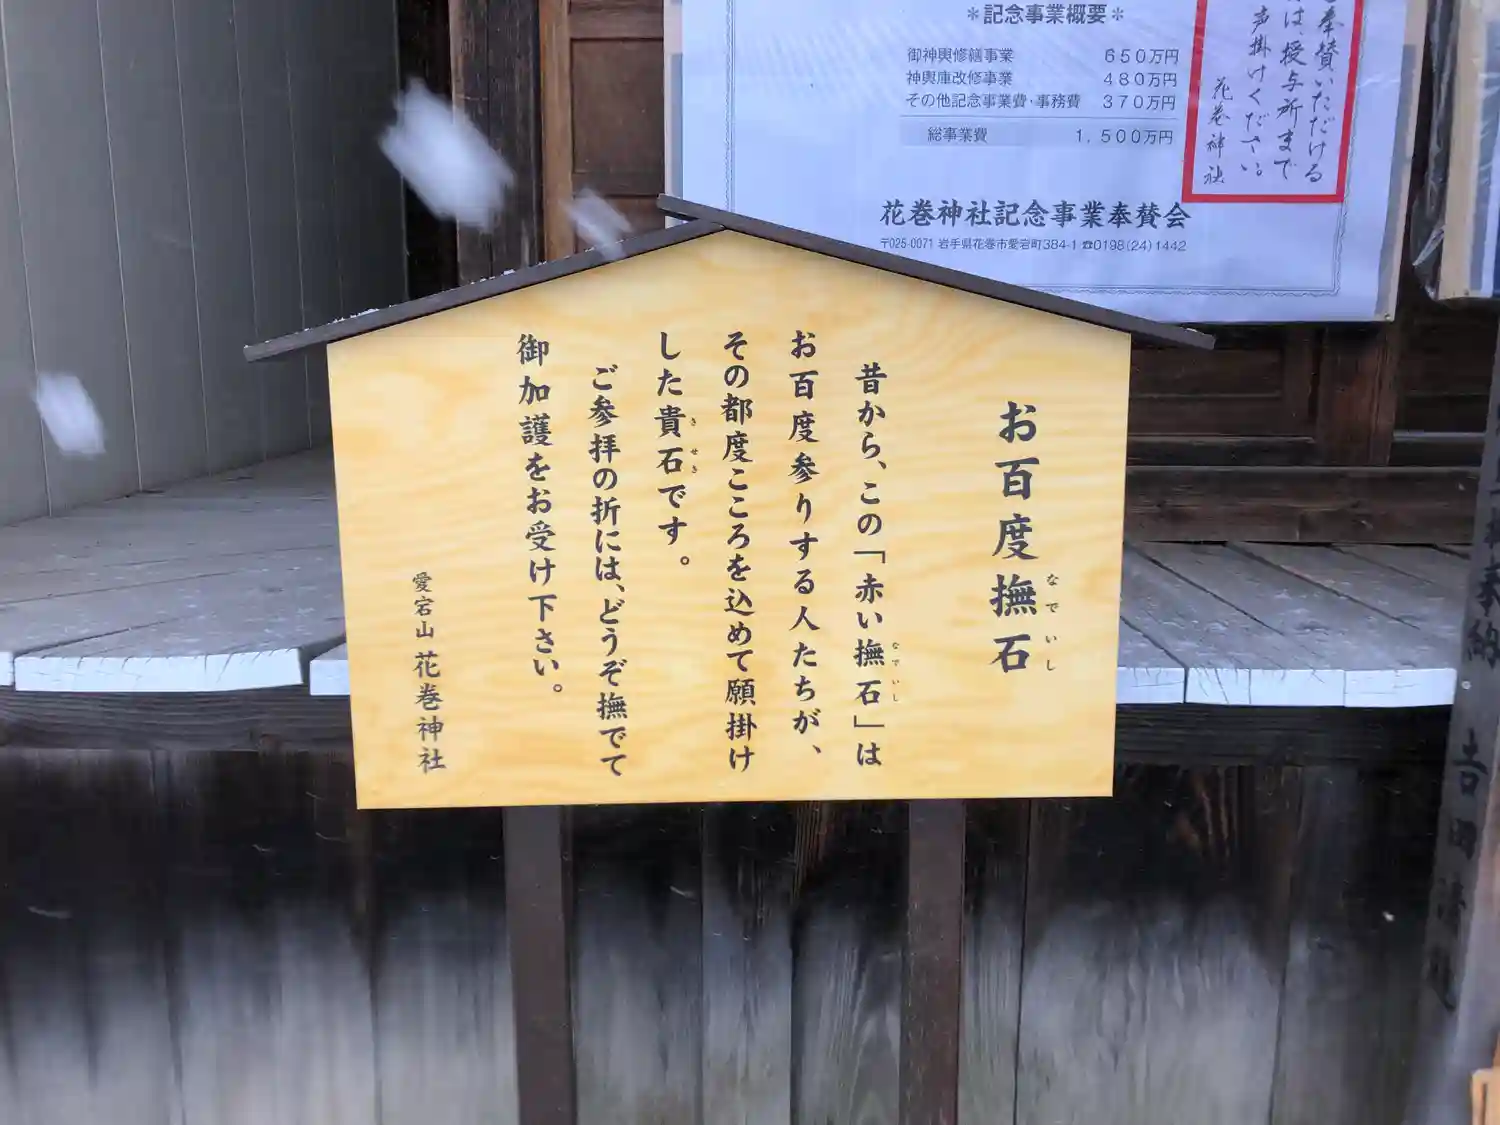 ＊記念事業概要＊
御神輿修繕事業 650万円
神輿庫改修事業 480万円
その他記念事業費・事務費 370万円
総事業費 1,500万円
花巻神社記念事業奉賛会
〒025-0071 岩手県花巻市愛宕町384-1 ☎0198(24)1442
奉賛いただける
は、授与所まで
声掛けください。
花巻神社
お百度撫石
なでいし
昔から、この「赤い撫石」は
なでいし
お百度参りする人たちが、
その都度こころを込めて願掛け
した貴石です。
きせき
ご参拝の折には、どうぞ撫でて
御加護をお受け下さい。
愛宕山 花巻神社
奉納